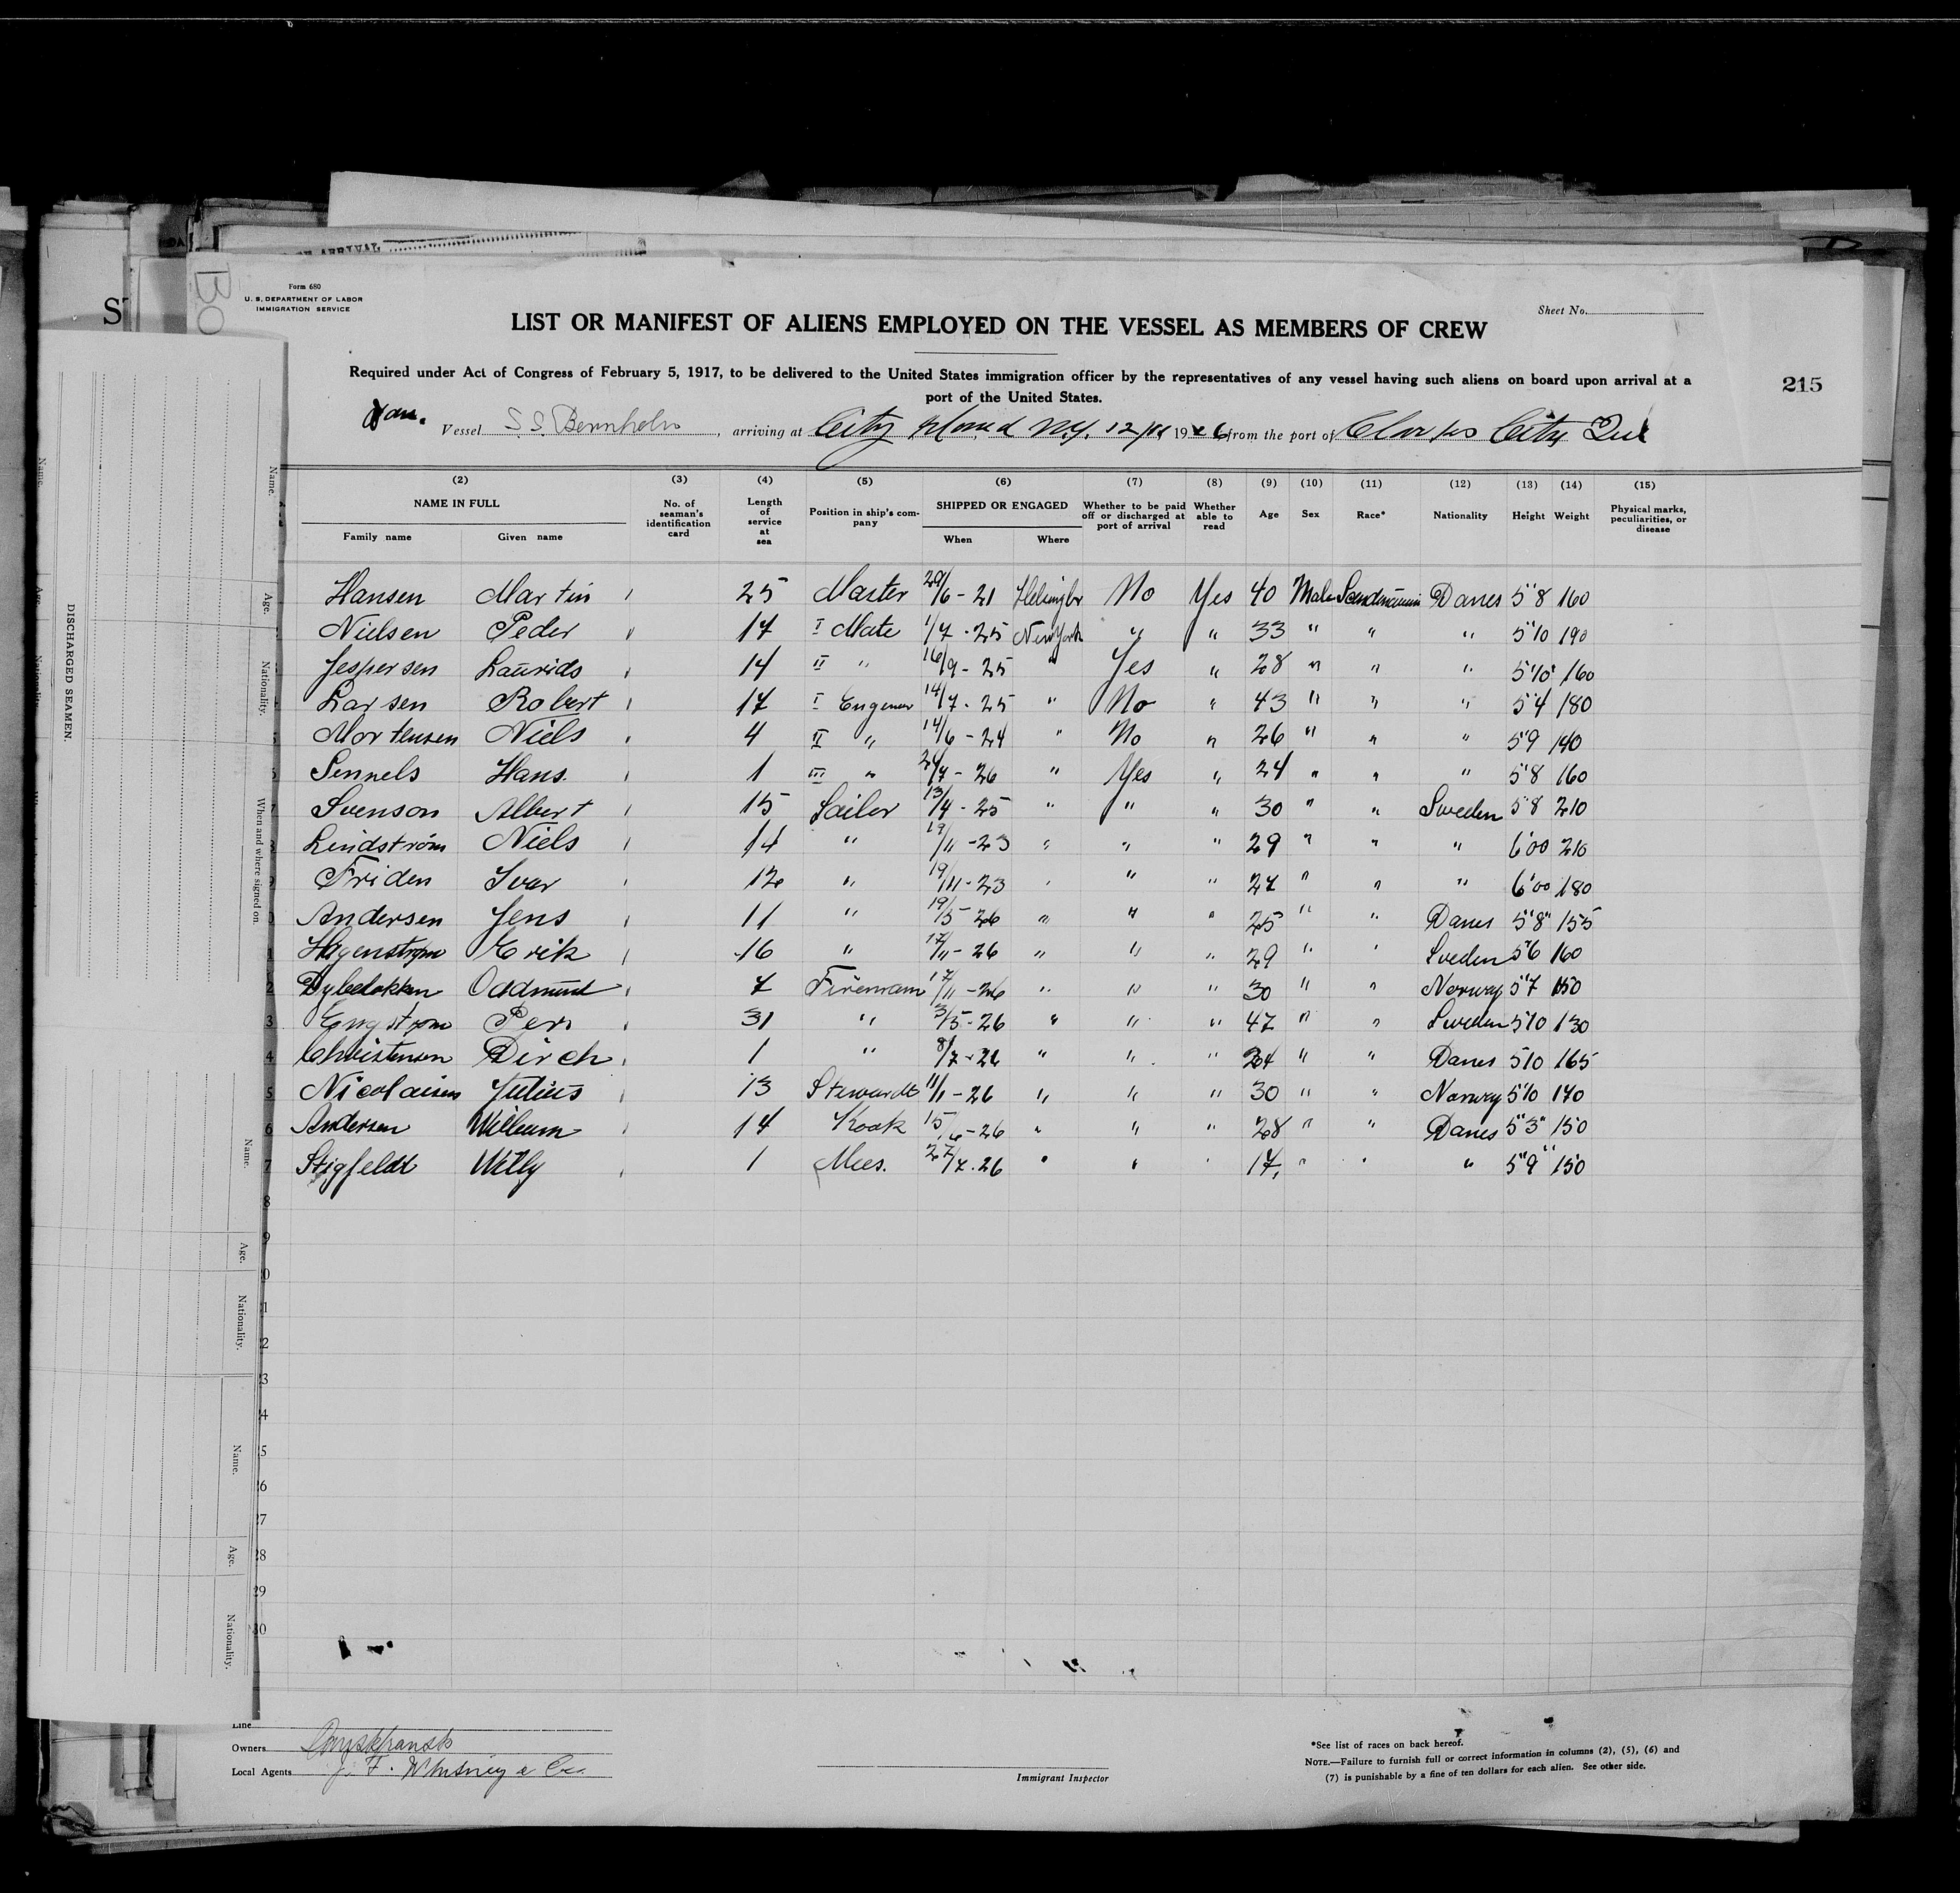 Form 680
U. S. DEPARTMENT OF LABOR
IMMIGRATION SERVICE
Sheet No.
LIST OR MANIFEST OF ALIENS EMPLOYED ON THE VESSEL AS MEMBERS OF CREW
Required under Act of Congress of February 5, 1917, to be delivered to the United States immigration officer by the representatives of any vessel having such aliens on board upon arrival at a
port of the United States.
215
Vessel S.S. Bornholm, arriving at City Island N.Y. 1926 from the port of Clarkes City Que
(2) (3) (4) (5) (6) (7) (8) (9) (10) (11) (12) (13) (14) (15)
NAME IN FULL No. of seaman's identification card Length of service at sea Position in ship's company SHIPPED OR ENGAGED Whether to be paid off or discharged at port of arrival Whether able to read Age Sex Race* Nationality Height Weight Physical marks, peculiarities, or disease
Family name Given name When Where
Hansen Martin 25 Master 29/6 - 21 Helsingør No Yes 40 Male Danes 5'8 160
Nielsen Peder 17 I Mate 1/7 - 25 New York " " 33 " " " 5'10 190
Jespersen Laurids 14 II " 16/9 - 25 " Yes " 28 " " " 5'10" 160
Larsen Robert 17 I Engeneer 14/7 - 25 " No " 43 " " " 5'4 180
Mortensen Niels 4 II " 14/6 - 24 " No " 26 " " " 5'9 140
Sennels Hans. 1 III " 24/7 - 26 " Yes " 24 " " " 5'8 160
Svenson Albert 15 Sailor 13/4 - 25 " " " 30 " " Sweden 5'8 210
Lindstrøm Niels 14 " 19/11 - 23 " " " 29 " " " 6'00 210
Friden Ivar 12 " 19/11 - 23 " " " 27 " " " 6'00 180
Andersen Jens 11 " 19/5 - 26 " " " 25 " " Danes 5'8" 155
Hagenstrøm Erik 16 " 17/11 - 26 " " " 29 " " Sweden 5'6 160
Dybedokken Oadmund 7 Fireman 17/11 - 26 " " " 30 " " Norway 5'7 150
Engstrøm Per 31 " 3/5 - 26 " " " 47 " " Sweden 5'10 130
Christensen Dirch 1 " 8/7 - 26 " " " 24 " " Danes 5'10 165
Nicolaisen Julius 13 Stewardt 11/1 - 26 " " " 30 " " Norway 5'10 140
Andersen William 14 Kook 15/6 - 26 " " " 28 " " Danes 5'3" 150
Stigfeldt Willy 1 Mess. 27/7 - 26 " " " 17 " " " 5'9" 150
Line
Owners
Local Agents J. F. Whitney & Co.
Immigrant Inspector
*See list of races on back hereof.
NOTE.—Failure to furnish full or correct information in columns (2), (5), (6) and
(7) is punishable by a fine of ten dollars for each alien. See other side.
DISCHARGED SEAMEN.
Name.
Age.
Nationality.
When and where signed on.
Name.
Age.
Nationality.
Name.
Age.
Nationality.